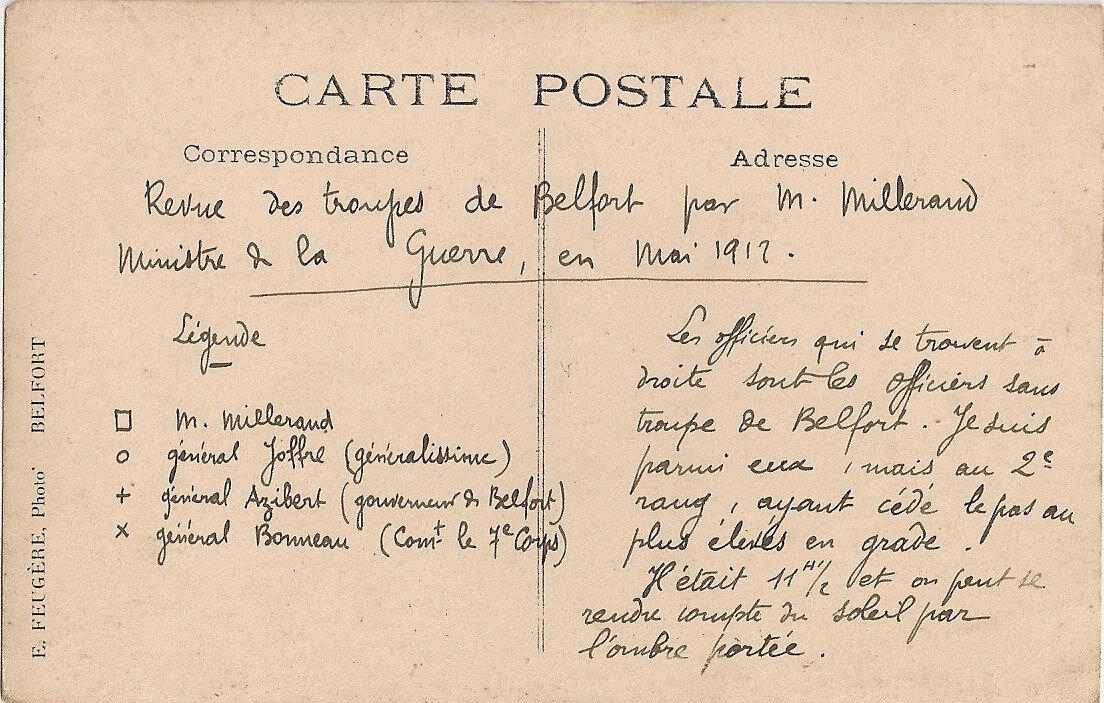 CARTE POSTALE
Correspondance
Adresse
Revue des troupes de Belfort par M. Millerand
Ministre de la Guerre, en Mai 1912.
Légende
□ M. Millerand
○ général Joffre (généralissime)
+ général Azibert (gouverneur de Belfort)
× général Bonneau (Comt le 7e Corps)
Les officiers qui se trouvent à
droite sont les officiers sans
troupe de Belfort. Je suis
parmi eux, mais au 2e
rang, ayant cédé le pas au
plus élevés en grade.
Il était 11 H 1/2 et on peut se
rendre compte du soleil par
l'ombre portée.
E. FEUGÈRE, Photo BELFORT